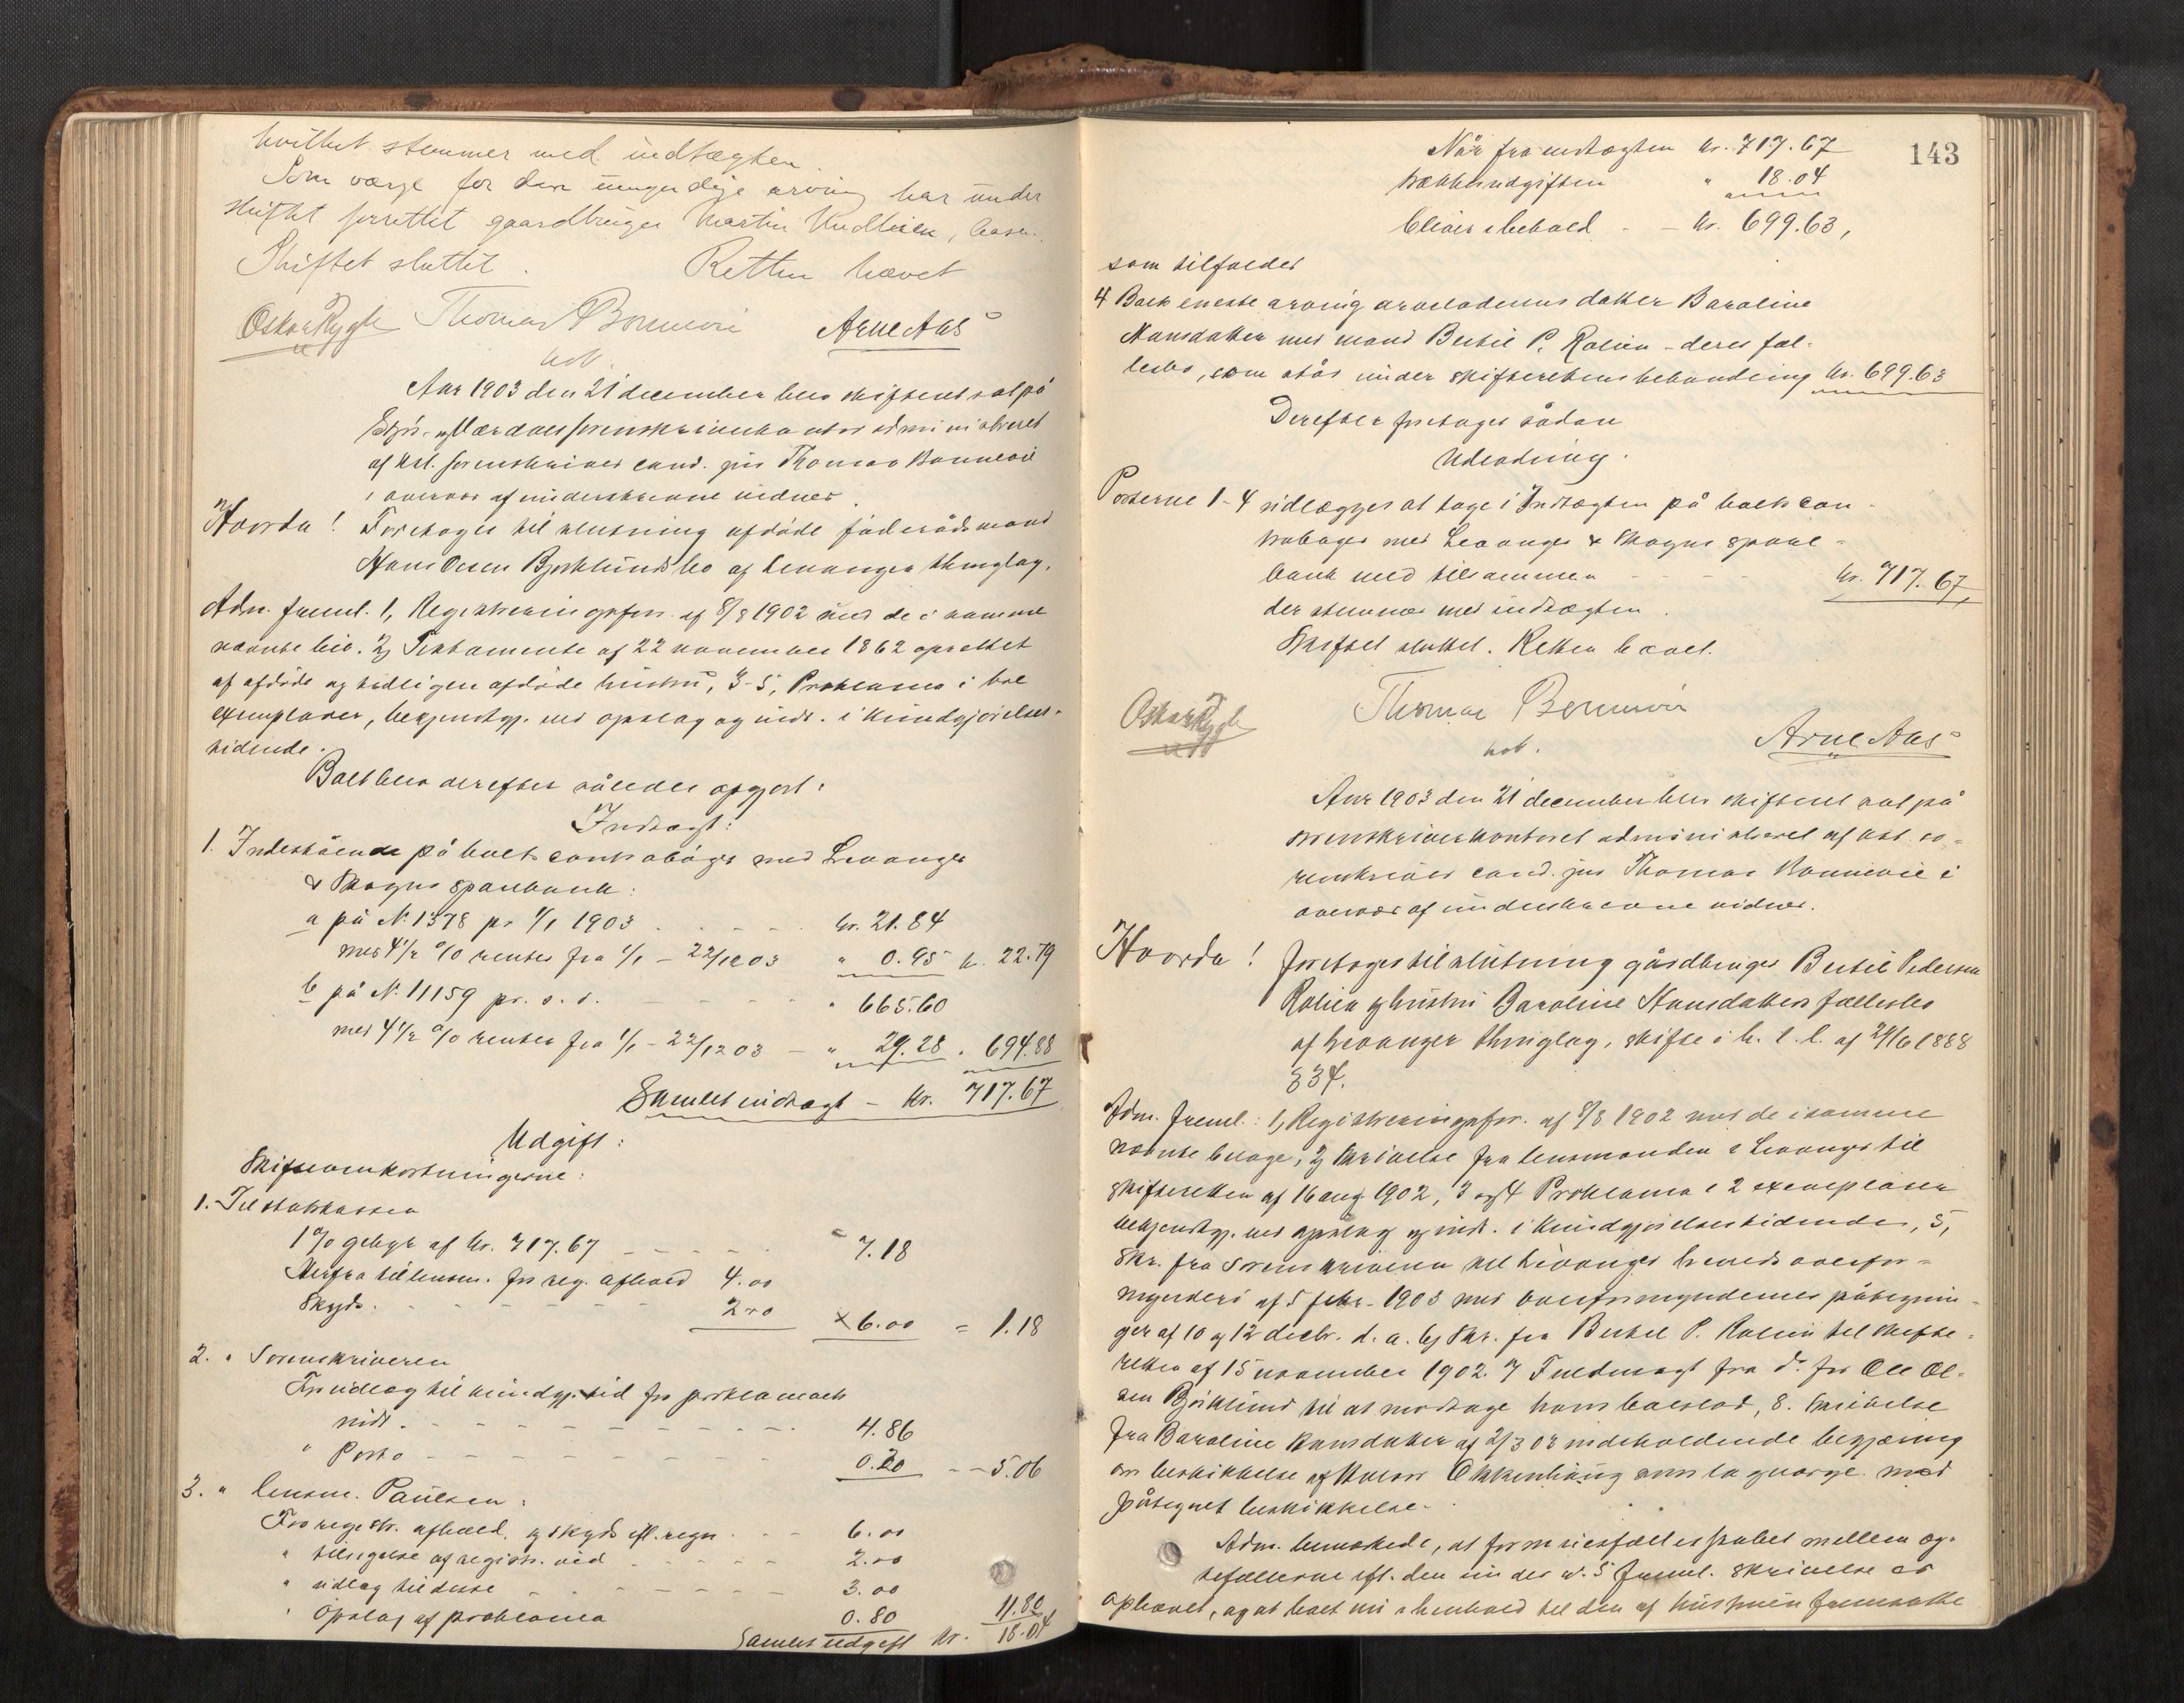 hvilket stemmer med indtægten
Som værge for den umyndige arving har under
skiftet forrettet gaardbruger Martin
Skiftet sluttet. Retten hævet
Oskar Rygh Thomas Bonnevie Arne Aas
kst.
Aar 1903 den 21 december blev skifteret sat på
Stjør- og Værdals sorenskriverkontor administreret
af kst. sorenskriver cand. jur Thomas Bonnevie
i overvær af underskrevne vidner.
Hvorda! Foretoges til slutning afdøde føderådsmand
Hans Olsen Bjørklunds bo af Levanger thinglag.
Adm. freml. 1, Registreringsforr. af 8/8 1902 med de i samme
nævnte bil. 2, Testamente af 22 november 1862 oprettet
af afdøde og tidligere afdøde hustru, 3-5, Proklama i tre
exemplarer, bekjendtgj. ved opslag og indr. i Kundgjørelses-
tidende.
Boet blev derefter således opgjort:
Indtægt:
1. Indestående på boets contrabøger med Levanger
& Skogns sparebank:
a på N. 1378 pr. 1/1 1903 kr. 21.84
med 4 1/2 % renter fra 1/1 - 22/12 03 " 0.95 k. 22.79
b på N. 11159 pr. s. d. " 665.60
med 4 1/2 % renter fra 1/1 - 22/12 03 - " 29.28 " 694.88
Samlet indtægt - Kr. 717.67
Udgift:
Skifteomkostningerne:
1. Til statskassen
1 % gebyr af kr. 717.67 7.18
Herfra til lensm. for reg. afhold 4.00
Skyds. 2.00 × 6.00 = 1.18
2. " Sorenskriveren
For udlæg til kundgj. tid for proklamaets
indr. 4.86
" Porto 0.20 -- 5.06
3. " lensm. Paulsen:
For registr. afhold. og skyds efl. regn. 6.00
" tilsigelse af registr. vid 2.00
" udlæg til disse 3.00
" Opslag af proklama 0.80 11.80
Samlet udgift kr. 18.04
143
Når fra indtægten kr. 717.67
trækkes udgiften " 18.04
bliver i behold - - kr. 699.63,
som tilfalder
4 Boets eneste arving arveladerens datter Baroline
Hansdatter med mand Bertil P. Rolien - deres fæl-
lesbo, som står under skifterettens behandling kr. 699.63
Derefter foretoges sådan
Udlodning.
Posterne 1-4 udlægges at tage i Indtægten på boets con-
trabøger med Levanger & Skogns spare-
bank med tilsammen - - - kr. 717.67,
der stemmer med indtægten.
Skiftet sluttet. Retten hævet.
Oskar Rygh Thomas Bonnevie
kst. Arne Aas
Aar 1903 den 21 december blev skifteret sat på
sorenskriverkontoret administreret af kst. so-
renskriver cand. jur Thomas Bonnevie i
overvær af underskrevne vidner.
Hvorda! foretoges til slutning gårdbruger Bertil Pedersen
Rolien og hustru Baroline Hansdatters fællesbo
af Levanger thinglag, skifte i h. t. l. af 29/6 1888
§ 34.
Adm. freml.: 1, Registreringsforr. af 8/8 1902 med de i samme
nævnte bilage, 2, Skrivelse fra lensmanden i Levanger til
skifteretten af 16 aug. 1902, 3 og 4 Proklama i 2 exemplarer
bekjendtgj. ved opslag og indr. i Kundgjørelsestidende, 5,
Skr. fra Sorenskriveren til Levanger herreds overfor-
mynderi af 5 febr. 1903 med overformyndernes påtegnin-
ger af 10 og 12 decbr. d. a. 6, Skr. fra Bertel P. Rolien til skifte-
retten af 15 november 1902. 7 Fuldmagt fra do for Ole Ol-
sen Bjørklund til at modtage hans boeslod, 8. Skrivelse
fra Baroline Hansdatter af 2/3 03 indeholdende begjæring
om beskikkelse af Okkenhaug som lagværge med
påtegnet beskikkelse.
Adm. bemærkede, at formuesfællesskabet mellem æg-
tefællerne efl. den under n. 5 freml. skrivelse er
ophævet, og at boet nu i henhold til den af hustruen fremsatte